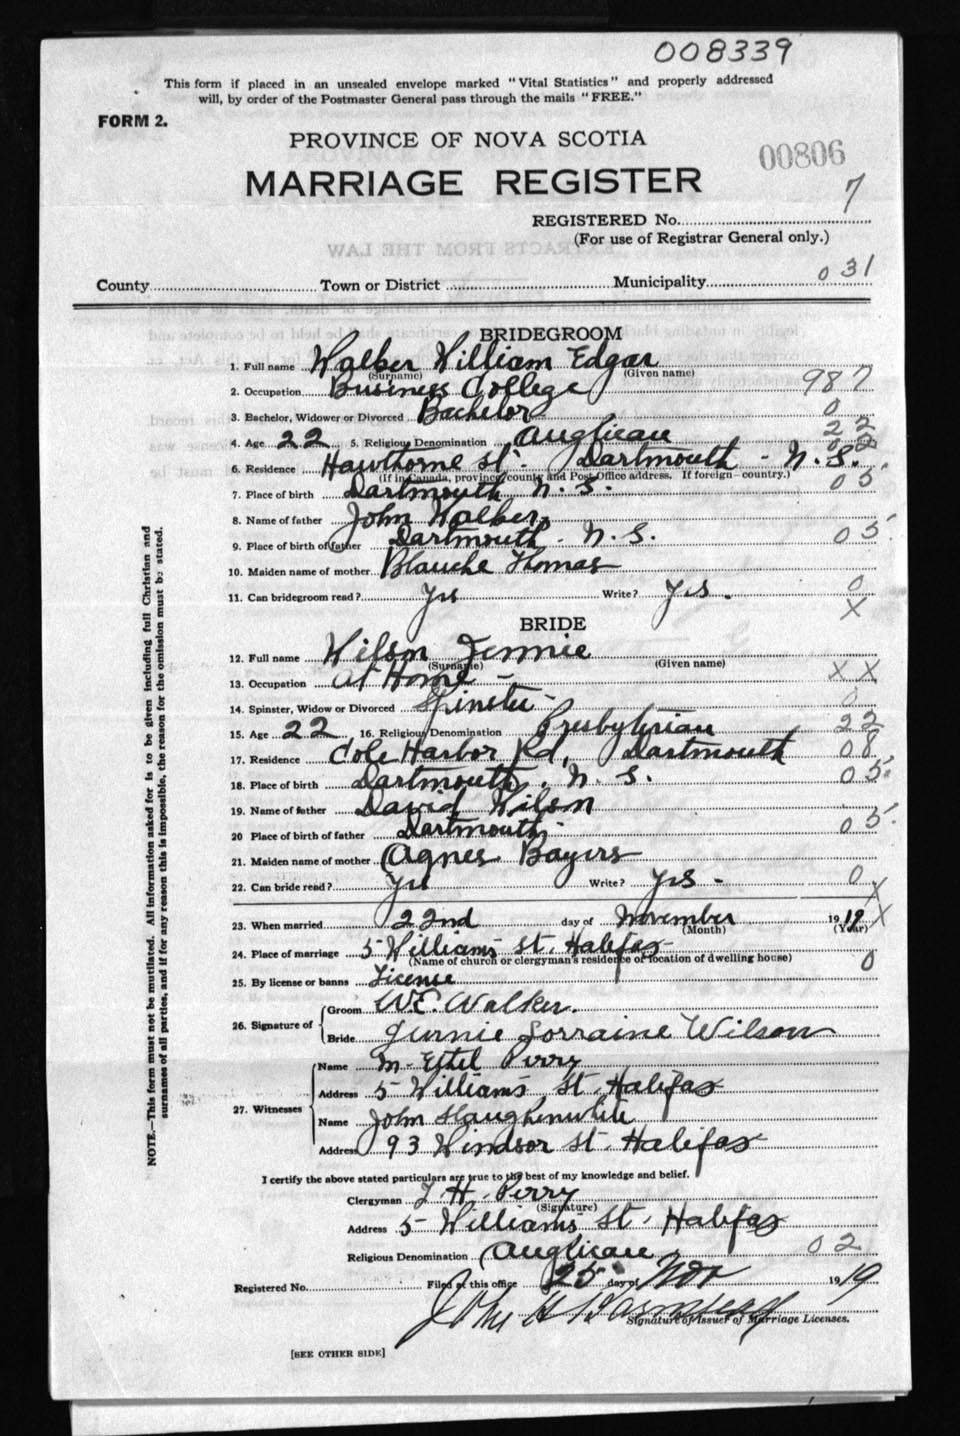 008339
This form if placed in an unsealed envelope marked "Vital Statistics" and properly addressed
will, by order of the Postmaster General pass through the mails "FREE."
FORM 2.
PROVINCE OF NOVA SCOTIA
00806
MARRIAGE REGISTER
7
REGISTERED No.
(For use of Registrar General only.)
EXTRACTS FROM THE LAW
County Town or District Municipality 031
BRIDEGROOM
1. Full name Walker William Edgar
(Surname) (Given name)
2. Occupation Business College 987
3. Bachelor, Widower or Divorced Bachelor 0
4. Age 22 5. Religious Denomination Anglican 22
6. Residence Hawthorne St. Dartmouth - N.S. 02
(If in Canada, province, county and Post Office address. If foreign—country.)
7. Place of birth Dartmouth N.S. 05
8. Name of father John Walker
9. Place of birth of father Dartmouth - N.S. 05
10. Maiden name of mother Blanche Thomas
11. Can bridegroom read? Yes Write? Yes. 0
X
BRIDE
12. Full name Wilson Jennie
(Surname) (Given name)
13. Occupation At Home - XX
14. Spinster, Widow or Divorced Spinster - 0
15. Age 22 16. Religious Denomination Presbyterian 22
17. Residence Cole Harbor Rd, Dartmouth 08
18. Place of birth Dartmouth, N.S. 05
19. Name of father David Wilson
20 Place of birth of father Dartmouth 05
21. Maiden name of mother Agnes Bayers
22. Can bride read? Yes Write? Yes - 0
X
23. When married 22nd day of November 1919 X
(Month) (Year)
24. Place of marriage 5 Williams St. Halifax
(Name of church or clergyman's residence or location of dwelling house) 0
25. By license or banns License
26. Signature of Groom W.E. Walker.
Bride Jennie Lorraine Wilson
27. Witnesses Name M. Ethel Perry
Address 5 Williams St Halifax
Name John Slaughenwhite
Address 93 Windsor St. Halifax
I certify the above stated particulars are true to the best of my knowledge and belief.
Clergyman J H. Perry
(Signature)
Address 5 Williams St, Halifax
Religious Denomination Anglican 02
Registered No. Filed at this office 25 day of Nov 1919
John H
Signature of Issuer of Marriage Licenses.
[SEE OTHER SIDE]
NOTE.—This form must not be mutilated. All information asked for is to be given including full Christian and
surnames of all parties, and if for any reason this is impossible, the reason for the omission must be stated.